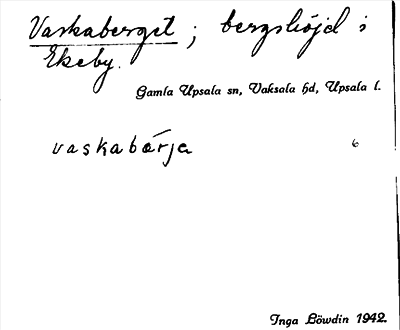 Vaskaberget ; bergshöjd i
Ekeby.
Gamla Upsala sn, Vaksala hd, Upsala l.
vaskabärja 6
Inga Löwdin 1942.